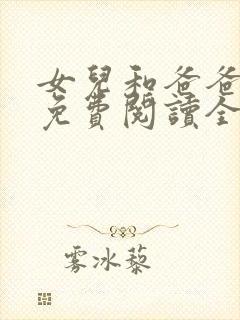 女兒和爸爸
免費閱讀全
雾冰藜